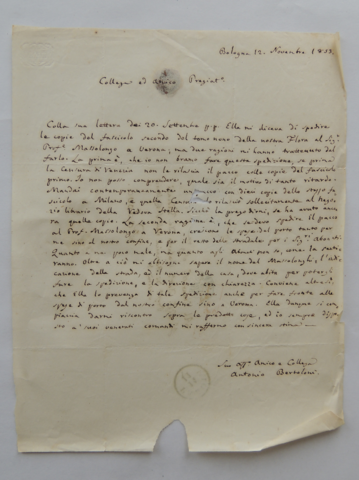 Bologna 12. Novembre 1853.
Collega ed Amico Pregiat.º
Colla sua lettera dei 20. Settembre p.p. Ella mi diceva di spedire
le copie del fascicolo secondo del tomo nono della nostra Flora al Sig.
Prof. Massalongo a Verona, ma due ragioni mi hanno trattenuto dal
farlo. La prima è, che io non posso fare questa spedizione, se prima
la Censura di Venezia non rilascia il passo alle copie del fascicolo
primo. Io non posso comprendere, quale sia il motivo di tanto ritardo.
Mandai contemporaneamente un pacco con dieci copie dello stesso fa-
scicolo a Milano, e quella Censura rilasciò sollecitamente al Nego-
zio librario della Vedova Stella. Sicchè la prego dirmi, se ha avuto anco-
ra quelle copie. La seconda ragione è, che
al Prof. Massalongo a Verona, conviene la spesa del porto tanto per
me sino al nostro confine, e per il caso dello
Quanto a me poco male, ma quanto agli
Oltre a ciò mi abbisogna sapere il nome del Massalongo, l'indi-
cazione della strada, ed il numero della casa, dove abita per poter gli
fare la spedizione, e la direzione con chiarezza. Conviene altresì,
che Ella lo prevenga di tale spedizione anche per fare fronte alle
spese di porto dal nostro confine sino a Verona. Ella dunque si com-
piaccia darmi riscontro sopra le predette cose, ed io sempre dispo-
sto a' suoi venerati comandi mi raffermo con sincera stima
Suo aff.º Amico e Collega
Antonio Bertoloni